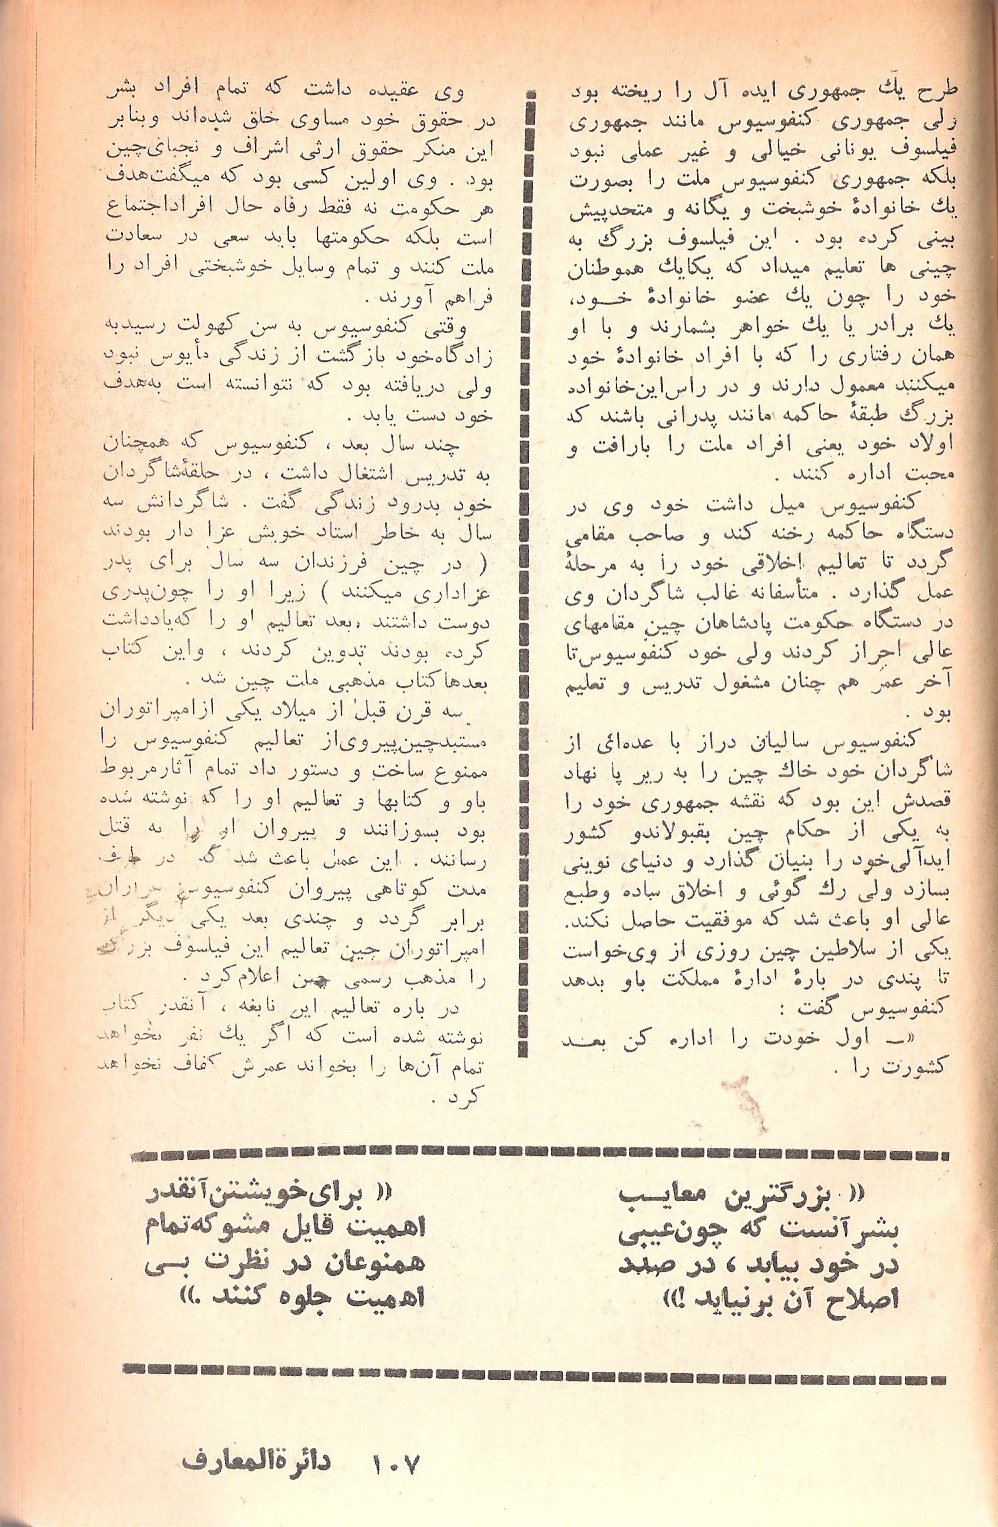 طرح یك جمهوری ایده آل را ریخته بود
ولی جمهوری کنفوسیوس مانند جمهوری
فیلسوف یونانی خیالی و غیر عملی نبود
بلکه جمهوری کنفوسیوس ملت را بصورت
یك خانوادهٔ خوشبخت و یگانه و متحدپیش
بینی کرده بود . این فیلسوف بزرگ به
چینی ها تعلیم میداد که یکایك هموطنان
خود را چون یك عضو خانوادهٔ خود،
یك برادر یا یك خواهر بشمارند و با او
همان رفتاری را که با افراد خانوادهٔ خود
میکنند معمول دارند و در راس‌این‌خانواده
بزرگ طبقهٔ حاکمه مانند پدرانی باشند که
اولاد خود یعنی افراد ملت را بارافت و
محبت اداره کنند .
کنفوسیوس میل داشت خود وی در
دستگاه حاکمه رخنه کند و صاحب مقامی
گردد تا تعالیم اخلاقی خود را به مرحلهٔ
عمل گذارد . متأسفانه غالب شاگردان وی
در دستگاه حکومت پادشاهان چین مقامهای
عالی احراز کردند ولی خود کنفوسیوس‌تا
آخر عمر هم چنان مشغول تدریس و تعلیم
بود .
کنفوسیوس سالیان دراز با عده‌ائی از
شاگردان خود خاك چین را به زیر پا نهاد
قصدش این بود که نقشه جمهوری خود را
به یکی از حکام چین بقبولاندو کشور
ایدآلی‌خود را بنیان گذارد و دنیای نوینی
بسازد ولی رك گوئی و اخلاق ساده وطبع
عالی او باعث شد که موفقیت حاصل نکند.
یکی از سلاطین چین روزی از وی‌خواست
تا پندی در بارهٔ ادارهٔ مملکت باو بدهد
کنفوسیوس گفت :
«ـ اول خودت را اداره کن بعـد
کشورت را .
وی عقیده داشت که تمام افراد بشر
در حقوق خود مساوی خلق شده‌اند وبنابر
این منکر حقوق ارثی اشراف و نجبای‌چین
بود . وی اولین کسی بود که میگفت‌هدف
هر حکومت نه فقط رفاه حال افراداجتماع
است بلکه حکومتها باید سعی در سعادت
ملت کنند و تمام وسایل خوشبختی افراد را
فراهم آورند .
وقتی کنفوسیوس به سن کهولت رسیدبه
زادگاه‌خود بازگشت از زندگی مأیوس نبود
ولی دریافته بود که نتوانسته است به‌هدف
خود دست یابد .
چند سال بعد ، کنفوسیوس که همچنان
به تدریس اشتغال داشت ، در حلقهٔ‌شاگردان
خود بدرود زندگی گفت . شاگردانش سه
سال به خاطر استاد خویش عزا دار بودند
( در چین فرزندان سه سال برای پدر
عزاداری میکنند ) زیرا او را چون‌پدری
دوست داشتند ،بعد تعالیم او را که‌یادداشت
کرده بودند تدوین کردند ، واین کتاب
بعدهاکتاب مذهبی ملت چین شد .
سه قرن قبل از میلاد یکی ازامپراتوران
مستبدچین‌پیروی‌از تعالیم کنفوسیوس را
ممنوع ساخت و دستور داد تمام آثارمربوط
باو و کتابها و تعالیم او را که نوشته شده
بود بسوزانند و پیروان او را به قتل
رسانند . این عمل باعث شد که در ظرف
مدت کوتاهی پیروان کنفوسیوس هزاران
برابر گردد و چندی بعد یکی دیگر از
امپراتوران چین تعالیم این فیلسوف بزرگ
را مذهب رسمی چین اعلام‌کرد .
در باره تعالیم این نابغه ، آنقدر کتاب
نوشته شده است که اگر یك نفر بخواهد
تمام آن‌ها را بخواند عمرش کفاف نخواهد
کرد .
(( بزرگترین معایـب
بشر آنست که چون‌عیبی
در خود بیابد ، در صدد
اصلاح آن برنیاید !))
(( برای‌خویشتن‌آنقدر
اهمیت قایل مشوکه‌تمام
همنوعان در نظرت بـی
اهمیت جلوه کنند .))
۱۰۷ دائرةالمعارف